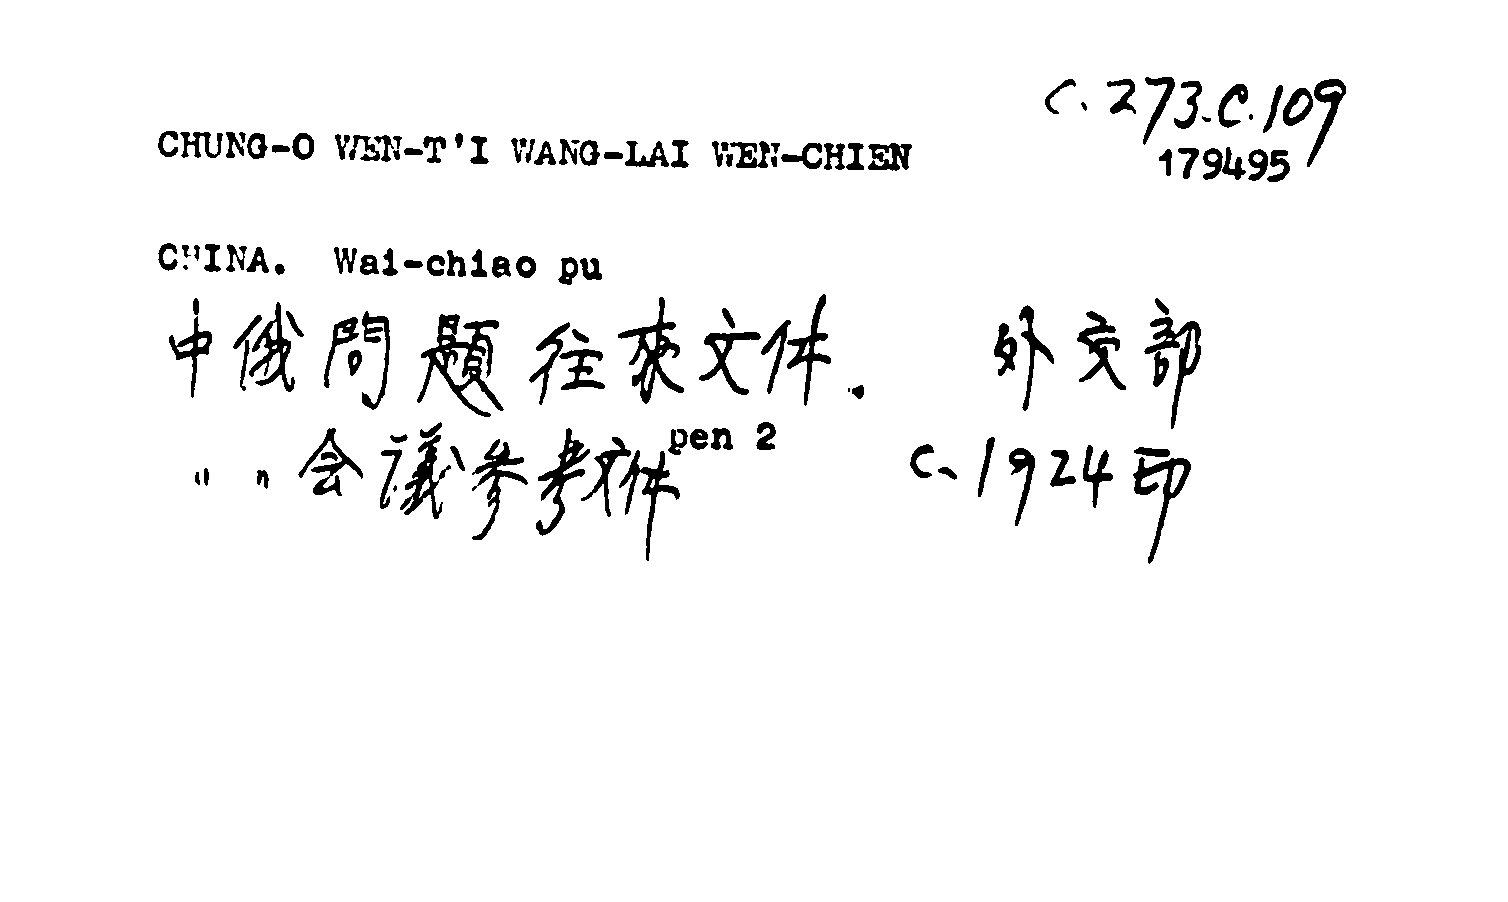 C.273.C.109
CHUNG-O WEN-T'I WANG-LAI WEN-CHIEN
179495
CHINA. Wai-chiao pu
中俄問題往來文件. 外交部
" " 会議參考文件 pen 2 C.1924印